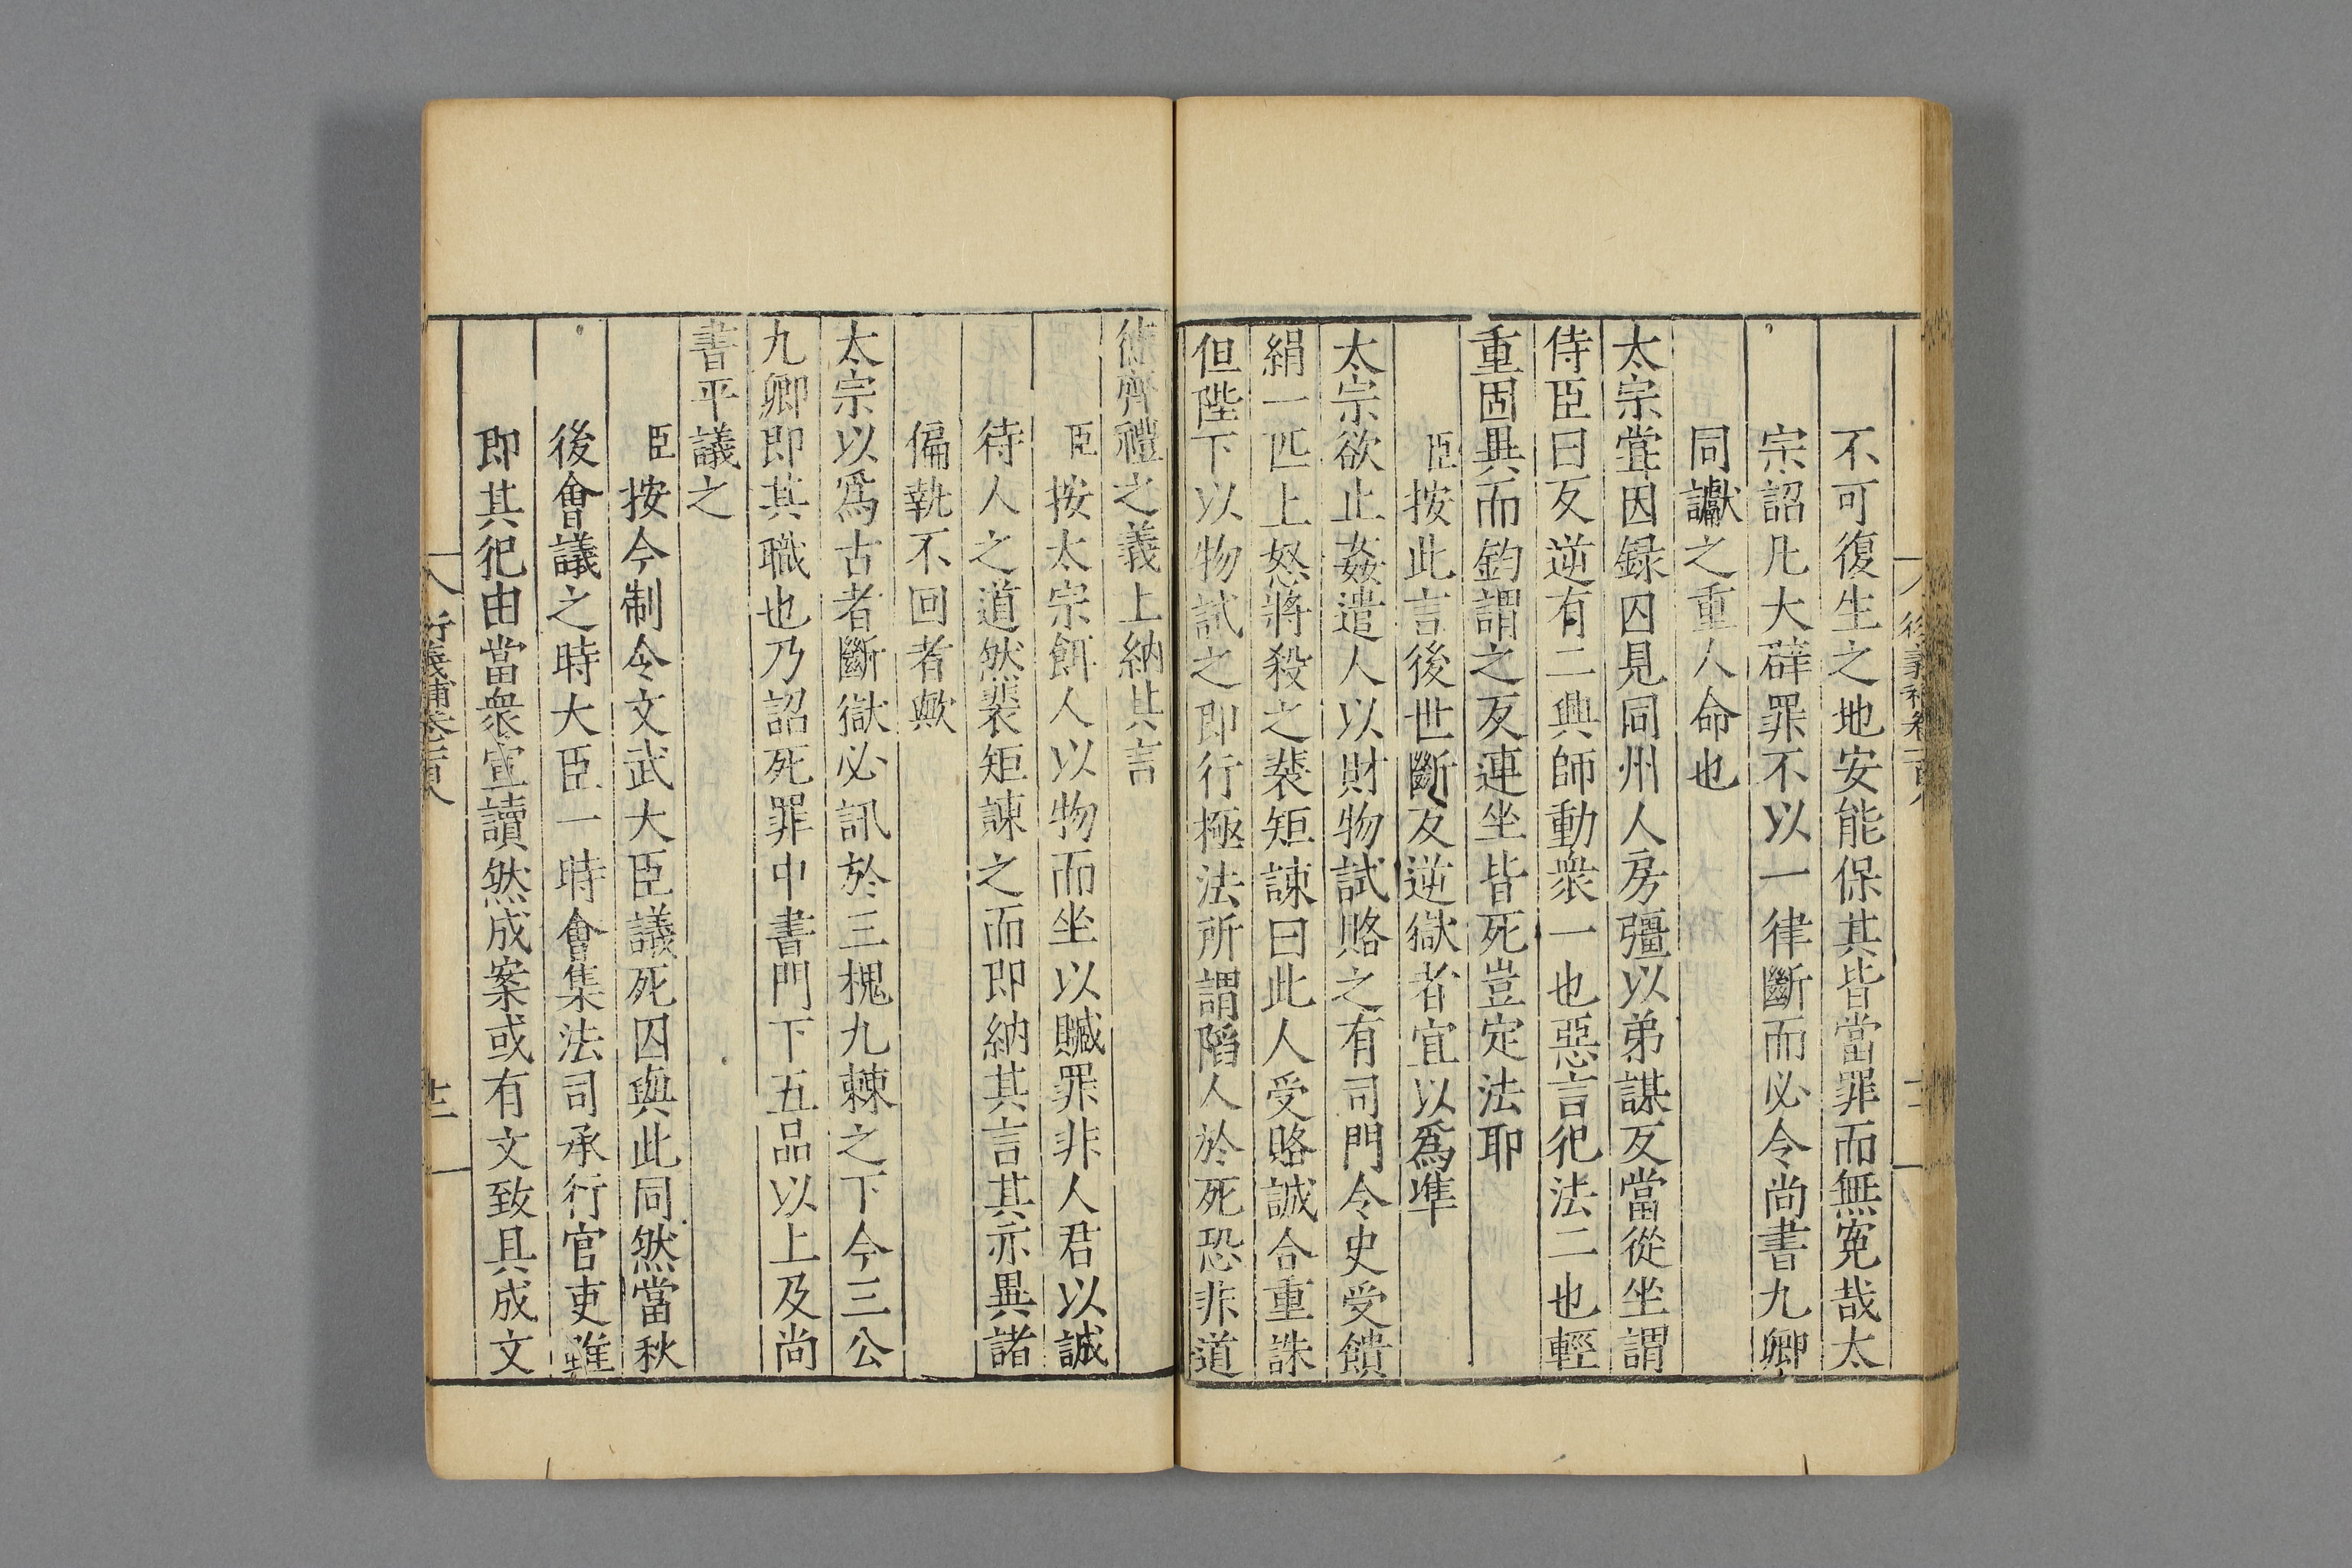 不可復生之地安能保其皆當罪而無寃哉太
宗詔凡大辟罪不以一律斷而必令尚書九卿
同讞之重人命也
太宗甞因録囚見同州人房彊以弟謀反當從坐謂
侍臣曰反逆有二興師動衆一也惡言犯法二也輕
重固異而鈞謂之反連坐皆死豈定法耶
臣按此言後世斷反逆獄者宜以爲準
太宗欲止姦遣人以財物試賂之有司門令史受饋
絹一匹上怒將殺之裴矩諫曰此人受賂誠合重誅
但陛下以物試之即行極法所謂陷人於死恐非道
德齊禮之義上納其言
臣按太宗餌人以物而坐以贓罪非人君以誠
待人之道然裴矩諫之而即納其言其亦異諸
偏執不回者歟
太宗以爲古者斷獄必訊於三槐九棘之下今三公
九卿即其職也乃詔死罪中書門下五品以上及尚
書平議之
臣按今制令文武大臣議死囚與此同然當秋
後會議之時大臣一時會集法司承行官吏雖
即其犯由當衆宣讀然成案或有文致具成文
衍義補卷一百八